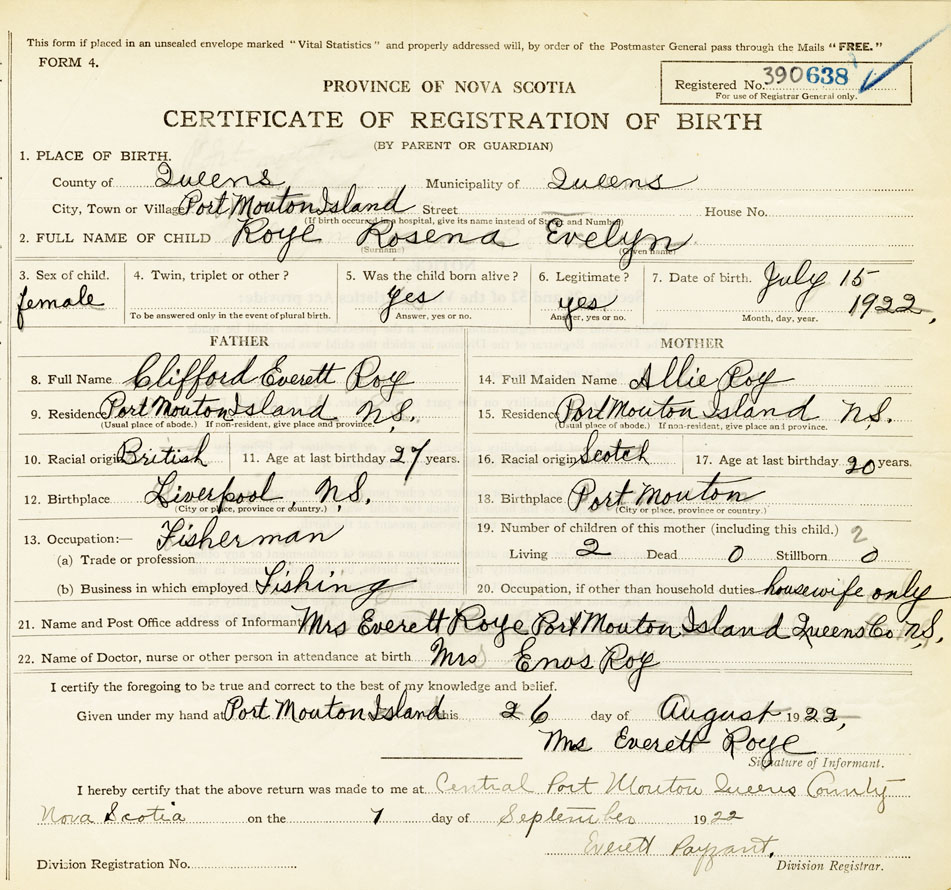 This form if placed in an unsealed envelope marked "Vital Statistics" and properly addressed will, by order of the Postmaster General pass through the Mails "FREE."
FORM 4.
Registered No. 390638
For use of Registrar General only.
PROVINCE OF NOVA SCOTIA
CERTIFICATE OF REGISTRATION OF BIRTH
(BY PARENT OR GUARDIAN)
1. PLACE OF BIRTH.
County of Queens Municipality of Queens
City, Town or Village Port Mouton Island Street House No.
(If birth occurred in a hospital, give its name instead of Street and Number)
2. FULL NAME OF CHILD Roye Rosena Evelyn
(Surname) (Given name)
3. Sex of child. 4. Twin, triplet or other? 5. Was the child born alive? 6. Legitimate? 7. Date of birth. July 15
female Yes yes 1922.
To be answered only in the event of plural birth. Answer, yes or no. Answer, yes or no. Month, day, year.
FATHER MOTHER
8. Full Name Clifford Everett Roy 14. Full Maiden Name Allie Roy
9. Residence Port Mouton Island N.S. 15. Residence Port Mouton Island N.S.
(Usual place of abode.) If non-resident, give place and province. (Usual place of abode.) If non-resident, give place and province.
10. Racial origin British 11. Age at last birthday 27 years. 16. Racial origin Scotch 17. Age at last birthday 20 years.
12. Birthplace Liverpool, N.S. 13. Birthplace Port Mouton
(City or place, province or country.) (City or place, province or country.)
13. Occupation:— Fisherman 19. Number of children of this mother (including this child.) 2
(a) Trade or profession Living 2 Dead 0 Stillborn 0
(b) Business in which employed Fishing 20. Occupation, if other than household duties housewife only
21. Name and Post Office address of Informant Mrs Everett Roye Port Mouton Island Queens Co. N.S.
22. Name of Doctor, nurse or other person in attendance at birth Mrs Enos Roy
I certify the foregoing to be true and correct to the best of my knowledge and belief.
Given under my hand at Port Mouton Island this 26 day of August 1922,
Mrs Everett Roye
Signature of Informant.
I hereby certify that the above return was made to me at Central Port Mouton Queens County
Nova Scotia on the 7 day of September 1922
Everett Payzant.
Division Registration No. Division Registrar.